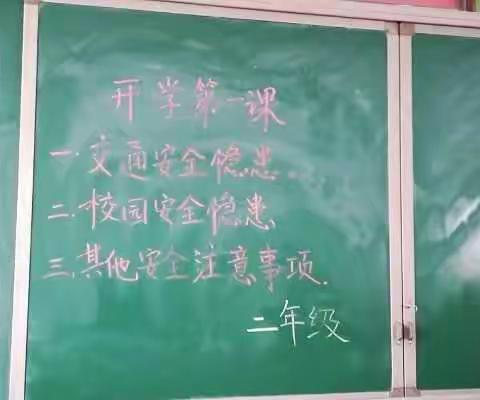 开学第一课
一.交通安全隐患...
二.校园安全隐患
三.其他安全注意事项.
二年级